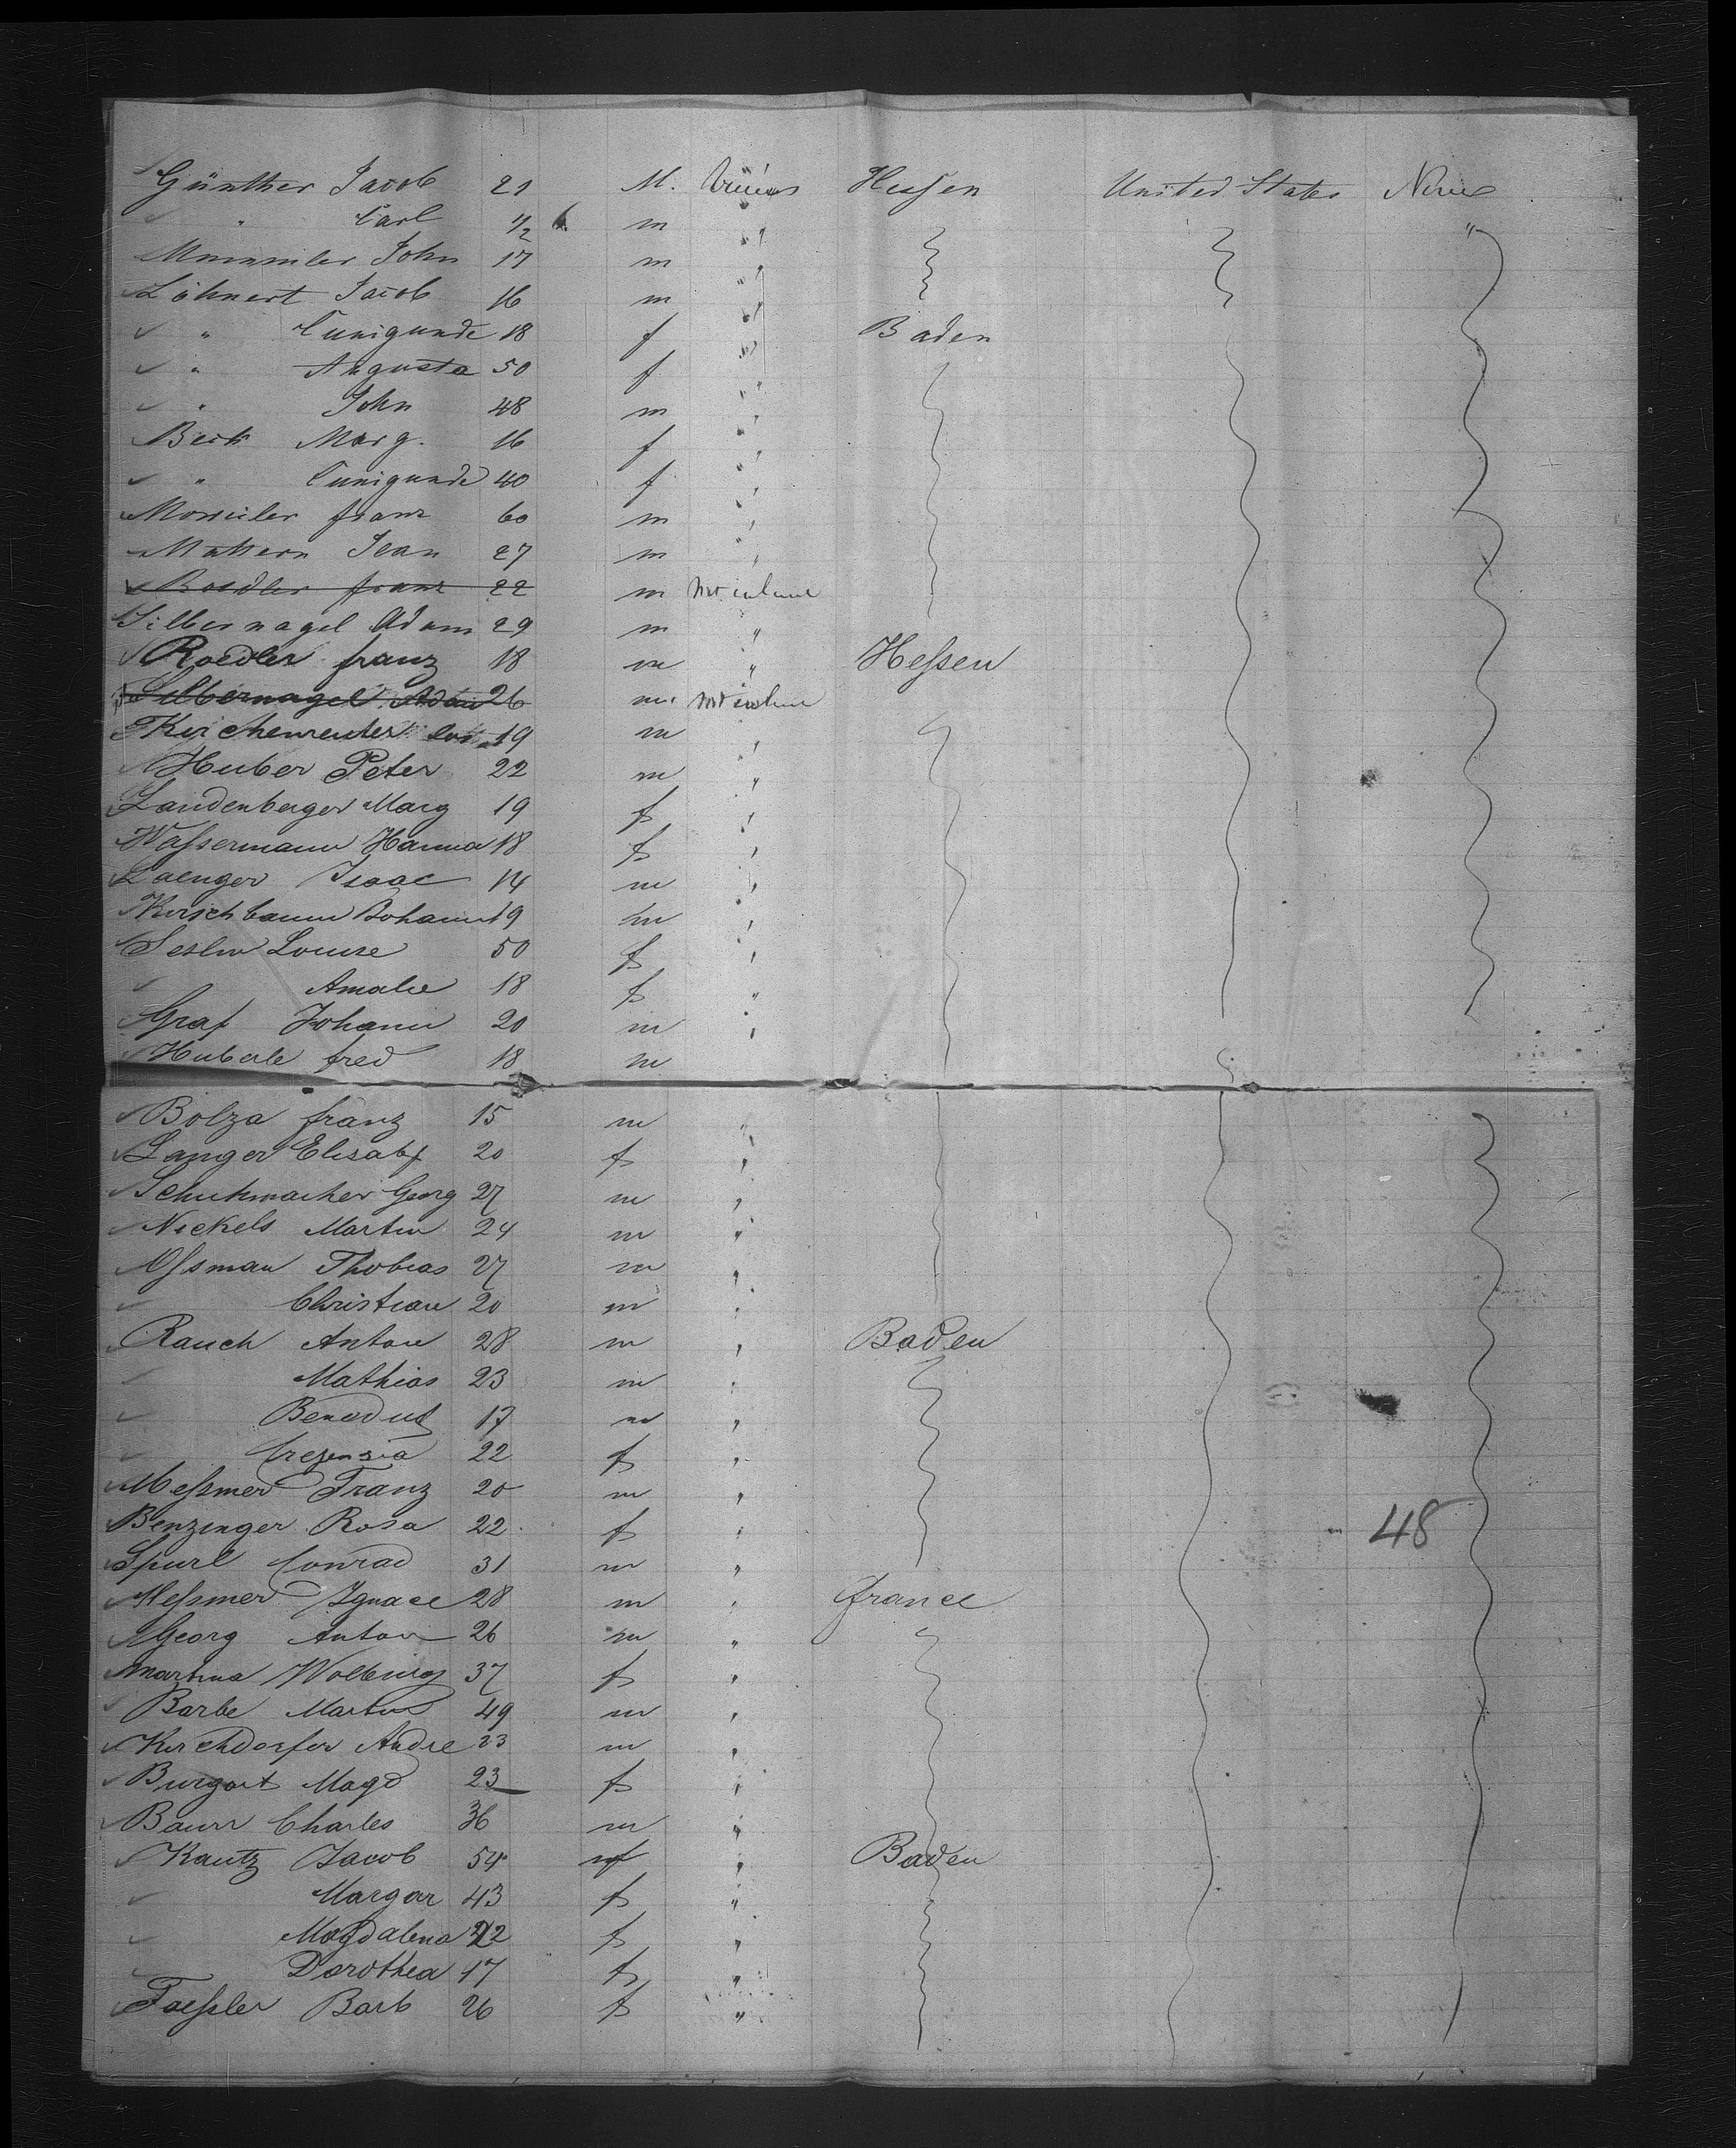 Günther Jacob 21 M. Hessen United States None
" Carl 1/2 m " "
John 17 m "
Löhnert Jacob 16 m "
" Cunigunde 18 f " Baden
" Augusta 50 f "
" John 48 m "
Beck Marg. 16 f "
" Cunigunde 40 f "
franz 60 m "
Mattern Jean 27 m "
Roedler franz 22 m not
Silbernagel Adam 29 m "
Roedler franz 18 m " Hessen
Silbernagel Adam 26 m. not
Kirchenreuter 19 m "
Huber Peter 22 m "
Landenberger Marg 19 f "
Wassermann Hanna 18 f "
Laenger Isaac 14 m "
Kirschbaum Johann 19 m "
Louise 50 f "
Amalie 18 f "
Graf Johann 20 m "
Huberle fred 18 m
Bolza franz 15 m "
Langer Elisabt 20 f "
Schuhmacher Georg 27 m "
Nickels Martin 24 m "
Ossman Thobias 27 m "
Christian 20 m "
Rauch Anton 28 m " Baden
Mathias 23 m "
Benedict 17 m "
Crezensia 22 f "
Messmer Franz 20 m "
Benzinger Rosa 22 f " 48
Spurl Conrad 31 m "
Messmer Ignace 28 m " france
Georg Anton 26 m "
Martina Wolburg 37 f "
Barbe Martin 49 m "
Kirchdorfer Andre 23 m "
Burgart Magd 23 f "
Baurr Charles 36 m "
Kautz Jacob 54 m " Baden
Margar 43 f "
Magdalena 22 f "
Dorothea 17 f "
Faessler Barb 26 f "